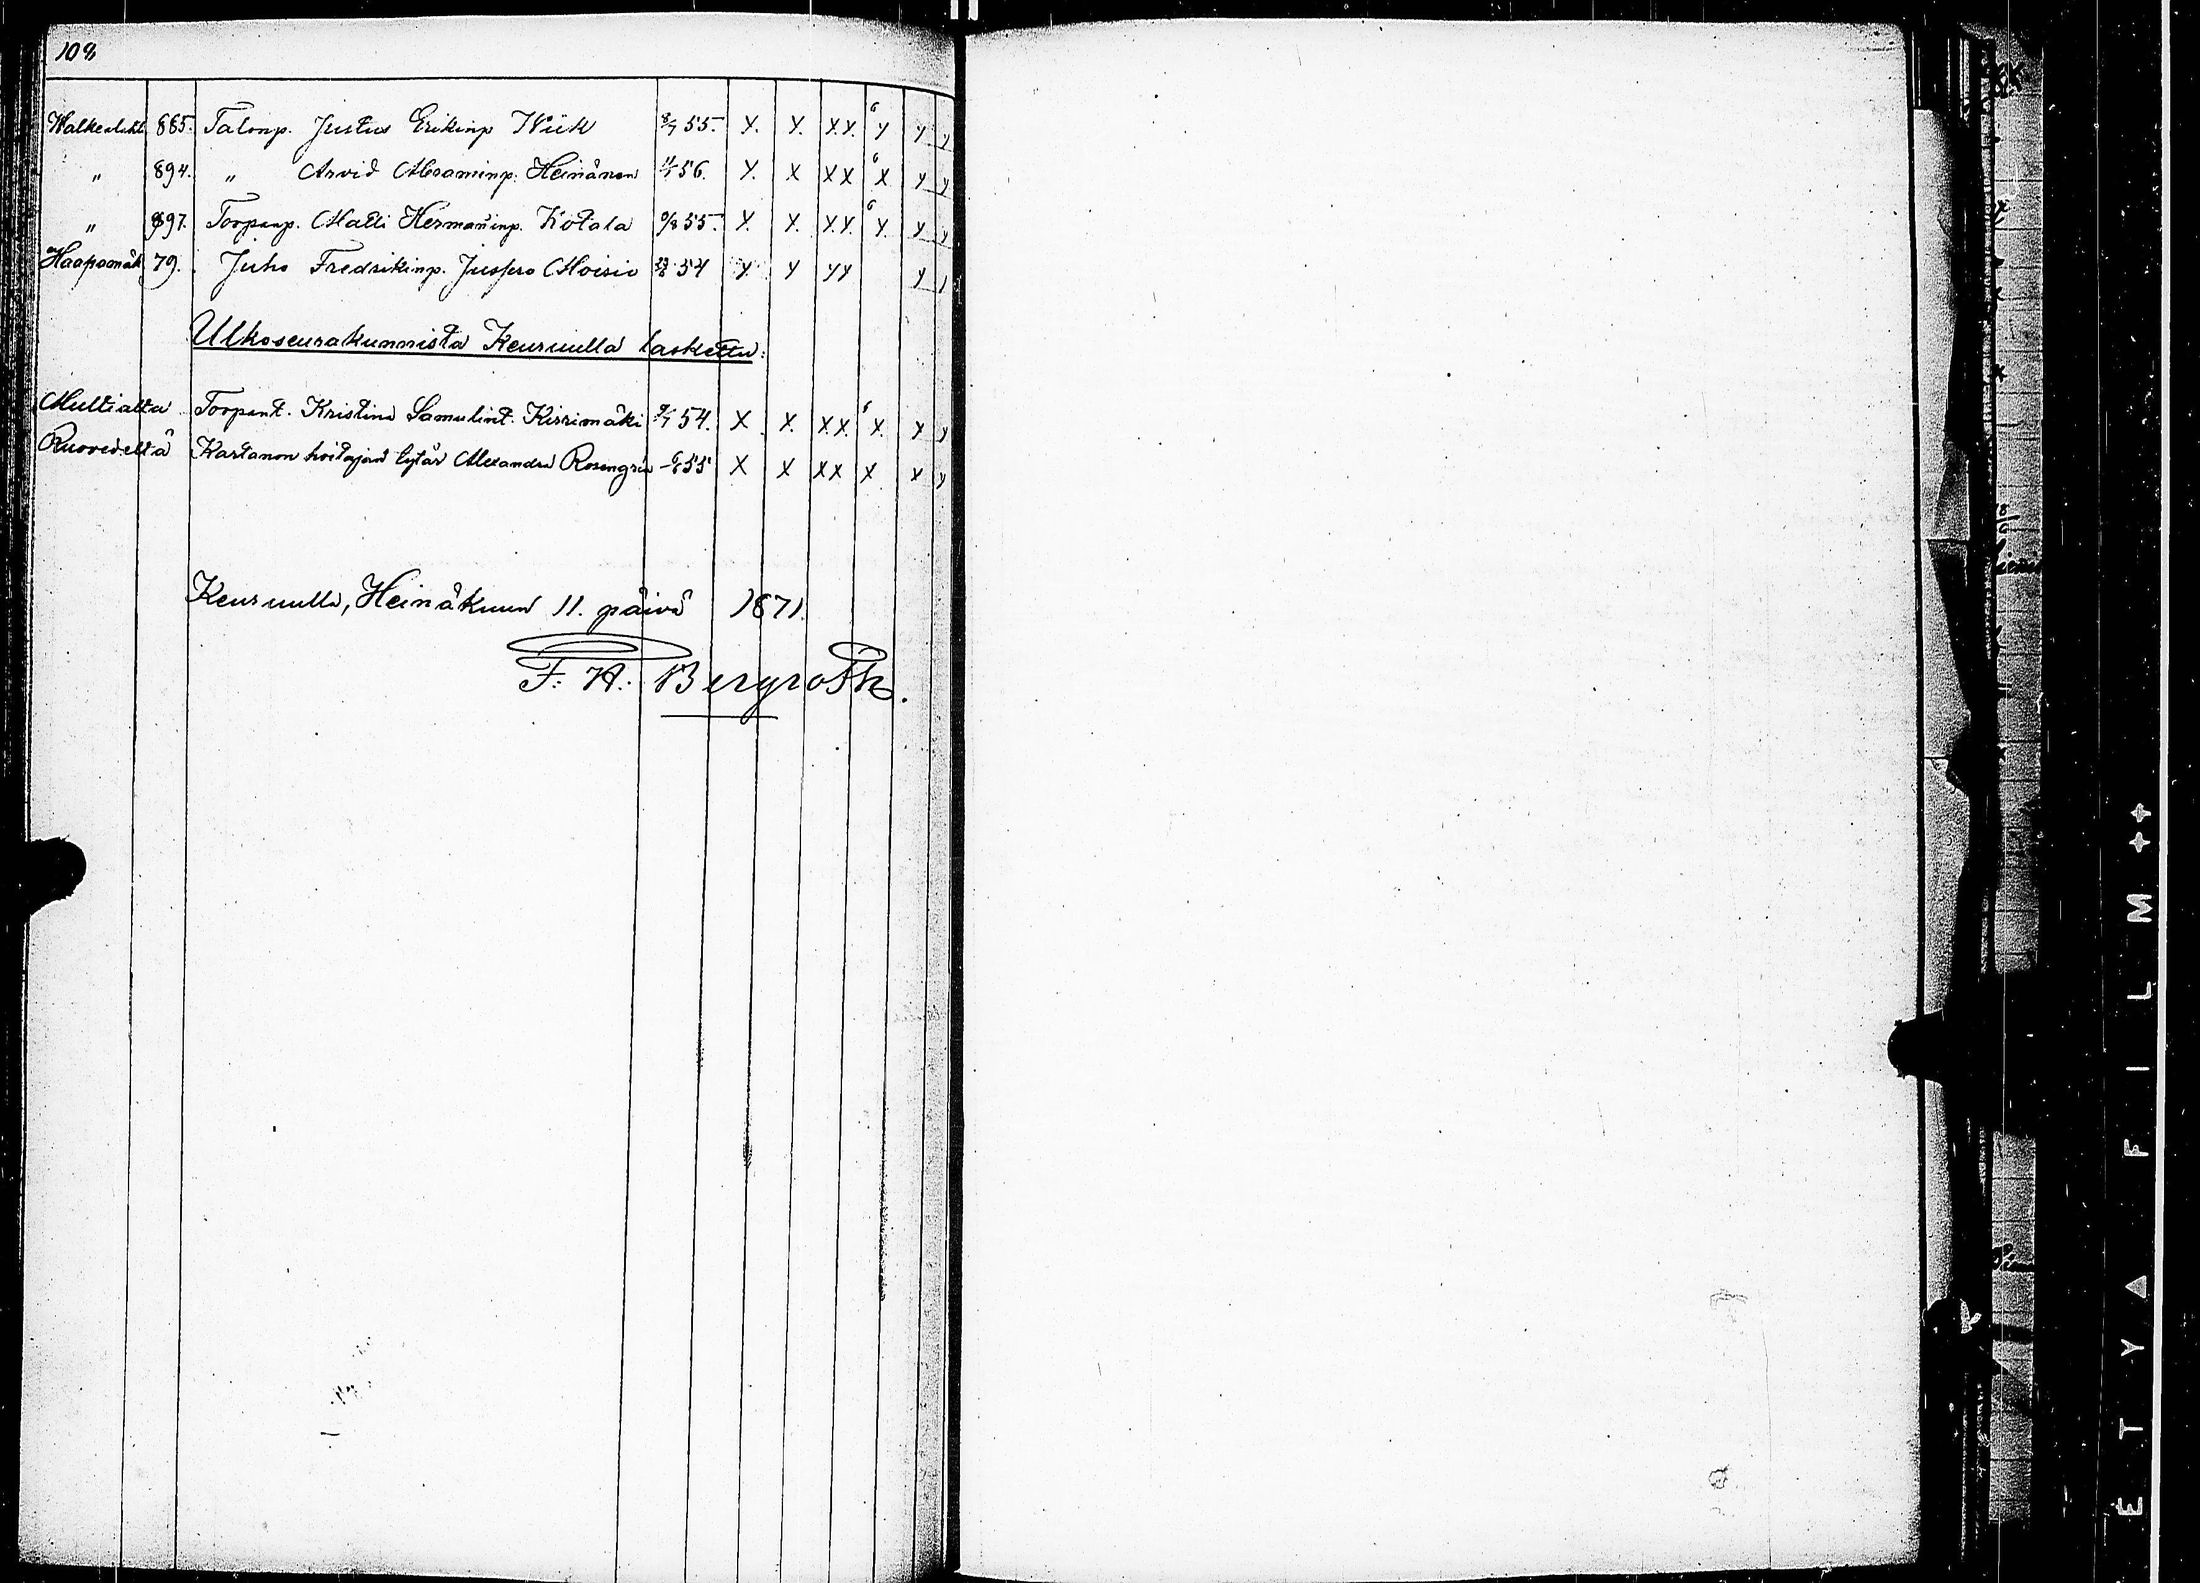 108
Walkealaht 885. Talonp. Justus Erikinp Wiik 8/7 55. X. X. XX. 6 X X X
" 894. " Arvid Abraminp. Heinänen 56. X. X XX 6 X X X
" 897. Torpanp. Matti Hermaninp. Kotala 9/8 55. X. X. XX. 6 X. X X
Haapamäk 79. Juho Fredrikinp. Moisio 54 X X XX X X
Ulkoseurakunnista Keuruulla laskettu:
Multialta Torpant. Kristina Samulint. Kirrimäki 54. X X. XX. 6 X. X X
Ruovedeltä Kartanon hoitajan tytär Alexandra Rosengrén 55 X X XX X X X
Keuruulla, Heinäkuun 11. päivä 1871.
F: A: Bergroth.
ÉTYA FILM